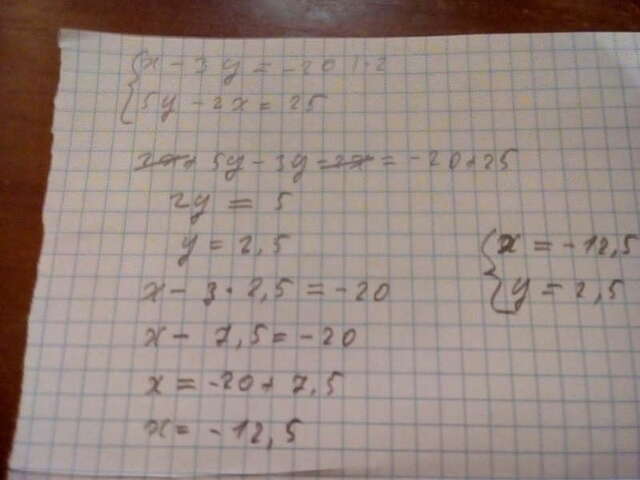 {x - 3y = -20 | · 2
{5y - 2x = 25
2x + 5y - 3y - 2x = -20 + 25
2y = 5
y = 2,5
x - 3 · 2,5 = -20
x - 7,5 = -20
x = -20 + 7,5
x = -12,5
{x = -12,5
{y = 2,5